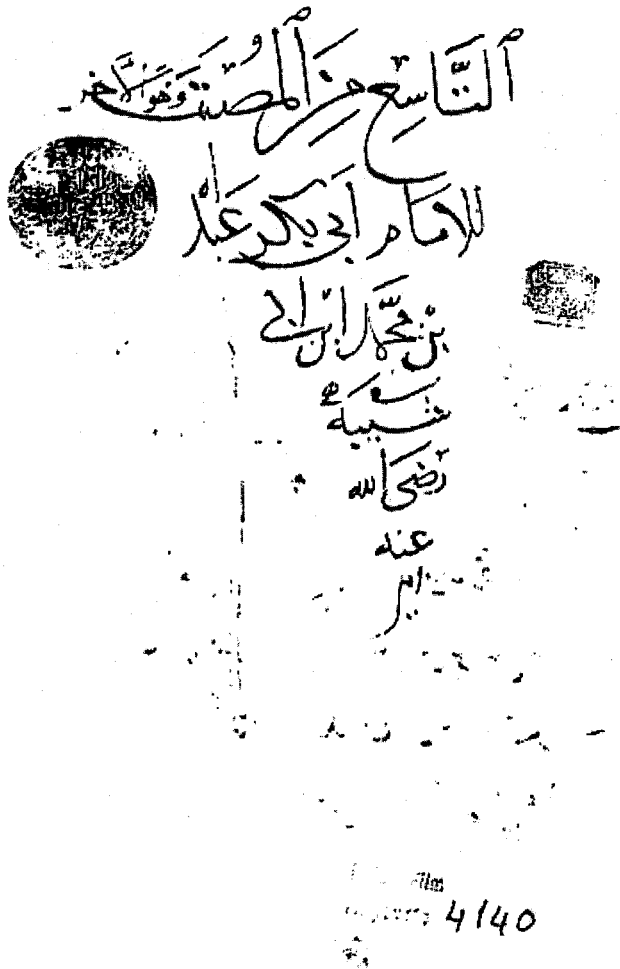 التَّاسِع مِنَ المُصنف وَهُوَ الآخر
للامَام أبي بكر عَبد
بن مُحَمَّد ابن أبي
شيبَه
رَضَى الله
عنه
Film
4140